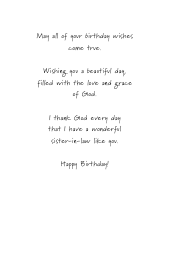 May all of your birthday wishes
come true.
Wishing you a beautiful day,
filled with the love and grace
of God.
I thank God every day
that I have a wonderful
sister-in-law like you.
Happy Birthday!